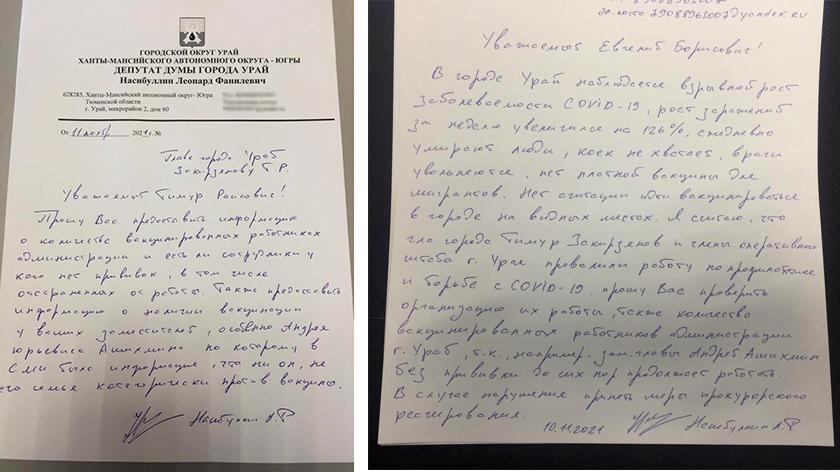 ГОРОДСКОЙ ОКРУГ УРАЙ
ХАНТЫ-МАНСИЙСКОГО АВТОНОМНОГО ОКРУГА - ЮГРЫ
ДЕПУТАТ ДУМЫ ГОРОДА УРАЙ
Насибуллин Леонард Фанилевич
628285, Ханты-Мансийский автономный округ- Югра
Тюменской области
г. Урай, микрорайон 2, дом 60
От 11 ноября 2021 г. №
Главе города Урай
Закирзянову Т.Р.
Уважаемый Тимур Раисович!
Прошу Вас предоставить информацию
о количестве вакцинированных работников
администрации и есть ли сотрудники у
кого нет прививок, в том числе
отстраненных от работы. Также предоставить
информацию о наличии вакцинации
у ваших заместителей, особенно Андрея
Юрьевича Ашихмина по которому в
СМИ была информация, что ни он, не
его семья категорически против вакцины.
Насибуллин Л.Ф
эл.почта 79088963007@yandex.ru
Уважаемый Евгений Борисович!
В городе Урай наблюдается взрывной рост
заболеваемости COVID-19, рост заражений
за неделю увеличился на 126%, ежедневно
умирают люди, коек не хватает, врачи
увольняются, нет платной вакцины для
мигрантов. Нет агитации идти вакцинироваться
в городе на видных местах. Я считаю, что
гла города Тимур Закирзянов и члены оперативного
штаба г. Урае провалили работу по профилактике
и борьбе с COVID-19. прошу Вас проверить
организацию их работы, также количество
вакцинированных работников администрации
г. Урай, т.к., например. зам. главы Андрей Ашихмин
без прививки до сих пор продолжает работать.
В случае нарушения принять меры прокурорского
реагирования.
10.11.2021 Насибуллин Л.Ф